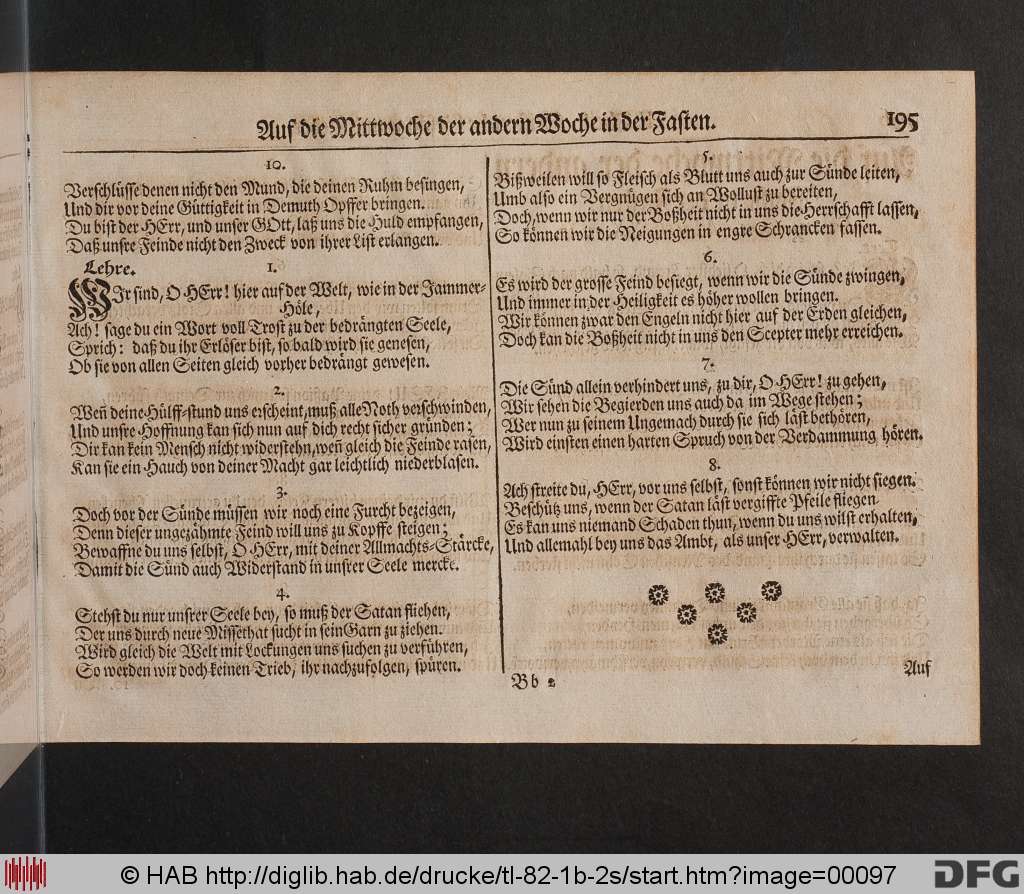 Auf die Mittwoche der andern Woche in der Fasten.
195
10.
Verschlüsse denen nicht den Mund, die deinen Ruhm besingen,
Und dir vor deine Güttigkeit in Demuth Opffer bringen.
Du bist der HErr, und unser GOtt, laß uns die Huld empfangen,
Daß unsre Feinde nicht den Zweck von ihrer List erlangen.
Lehre. 1.
WIr sind, O HErr! hier auf der Welt, wie in der Jammer-
Höle,
Ach! sage du ein Wort voll Trost zu der bedrängten Seele,
Sprich: daß du ihr Erlöser bist, so bald wird sie genesen,
Ob sie von allen Seiten gleich vorher bedrängt gewesen.
2.
Weñ deine Hülff-stund uns erscheint, muß alle Noth verschwinden,
Und unsre Hoffnung kan sich nun auf dich recht sicher gründen;
Dir kan kein Mensch nicht widerstehn, weñ gleich die Feinde rasen,
Kan sie ein Hauch von deiner Macht gar leichtlich niederblasen.
3.
Doch vor der Sünde müssen wir noch eine Furcht bezeigen,
Denn dieser ungezähmte Feind will uns zu Kopffe steigen;
Bewaffne du uns selbst, O HErr, mit deiner Allmachts-Stärcke,
Damit die Sünd auch Widerstand in unsrer Seele mercke.
4.
Stehst du nur unsrer Seele bey, so muß der Satan fliehen,
Der uns durch neue Missethat sucht in sein Garn zu ziehen.
Wird gleich die Welt mit Lockungen uns suchen zu verführen,
So werden wir doch keinen Trieb, ihr nachzufolgen, spüren.
5.
Bißweilen will so Fleisch als Blutt uns auch zur Sünde leiten,
Umb also ein Vergnügen sich an Wollust zu bereiten,
Doch, wenn wir nur der Boßheit nicht in uns die Herrschafft lassen,
So können wir die Neigungen in engre Schrancken fassen.
6.
Es wird der grosse Feind besiegt, wenn wir die Sünde zwingen,
Und immer in der Heiligkeit es höher wollen bringen.
Wir können zwar den Engeln nicht hier auf der Erden gleichen,
Doch kan die Boßheit nicht in uns den Scepter mehr erreichen.
7.
Die Sünd allein verhindert uns, zu dir, O HErr! zu gehen,
Wir sehen die Begierden uns auch da im Wege stehen;
Wer nun zu seinem Ungemach durch sie sich läst bethören,
Wird einsten einen harten Spruch von der Verdammung hören.
8.
Ach streite du, HErr, vor uns selbst, sonst können wir nicht siegen.
Beschütz uns, wenn der Satan läst vergiffte Pfeile fliegen
Es kan uns niemand Schaden thun, wenn du uns wilst erhalten,
Und allemahl bey uns das Ambt, als unser HErr, verwalten.
Bb 2
Auf
© HAB http://diglib.hab.de/drucke/tl-82-1b-2s/start.htm?image=00097
DFG